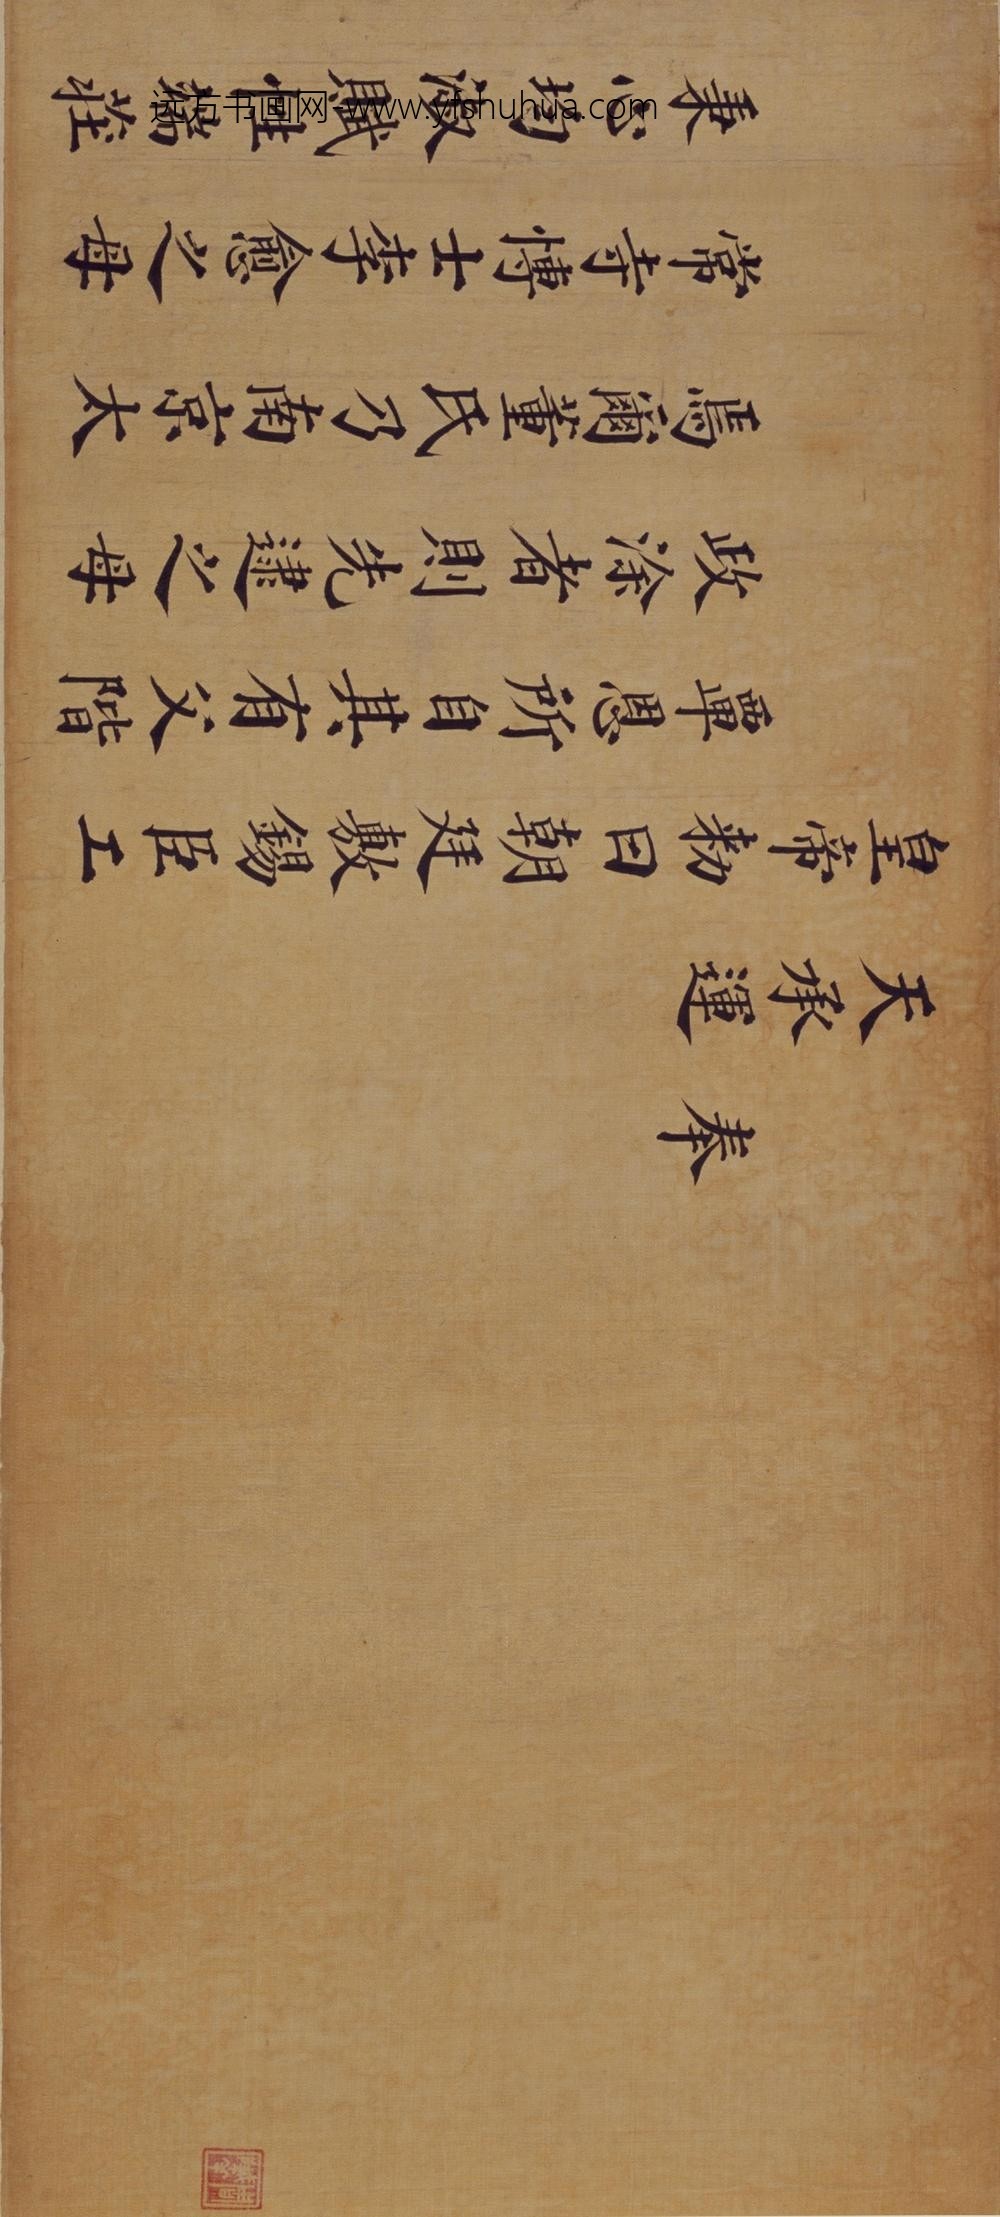 奉
天承運
皇帝勅曰朝廷敷錫臣工
覃恩所自其有父階
政涂者則先逮之母
焉爾董氏乃南京太
常寺博士李愈之母
秉心均淑賦性端莊
远方书画网-www.yfshuhua.com